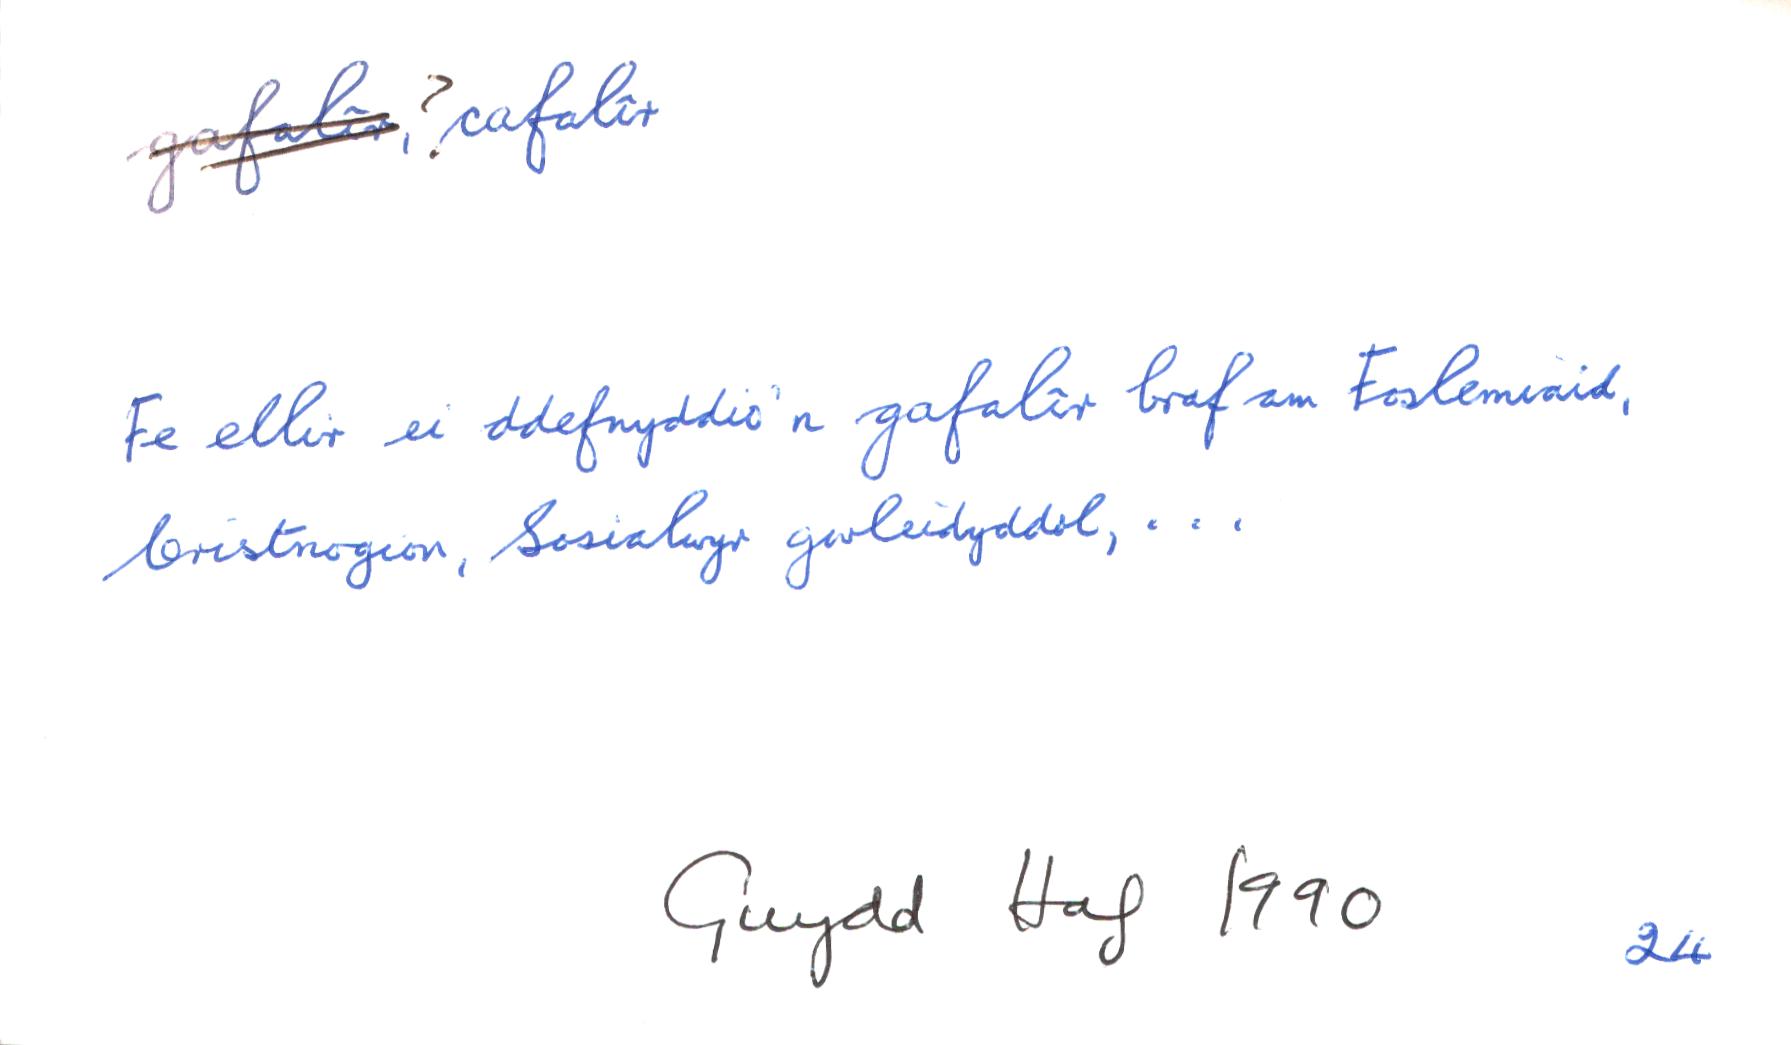 gafalîr, ? cafalîr
Fe ellir ei ddefnyddio'n gafalîr braf am Foslemiaid,
Cristnogion, Sosialwyr gwleidyddol, . . .
Gwydd Haf 1990
24